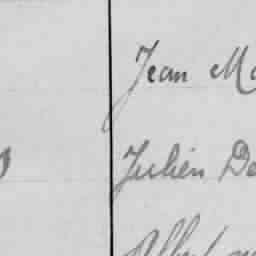 Jean Ma
Julien De